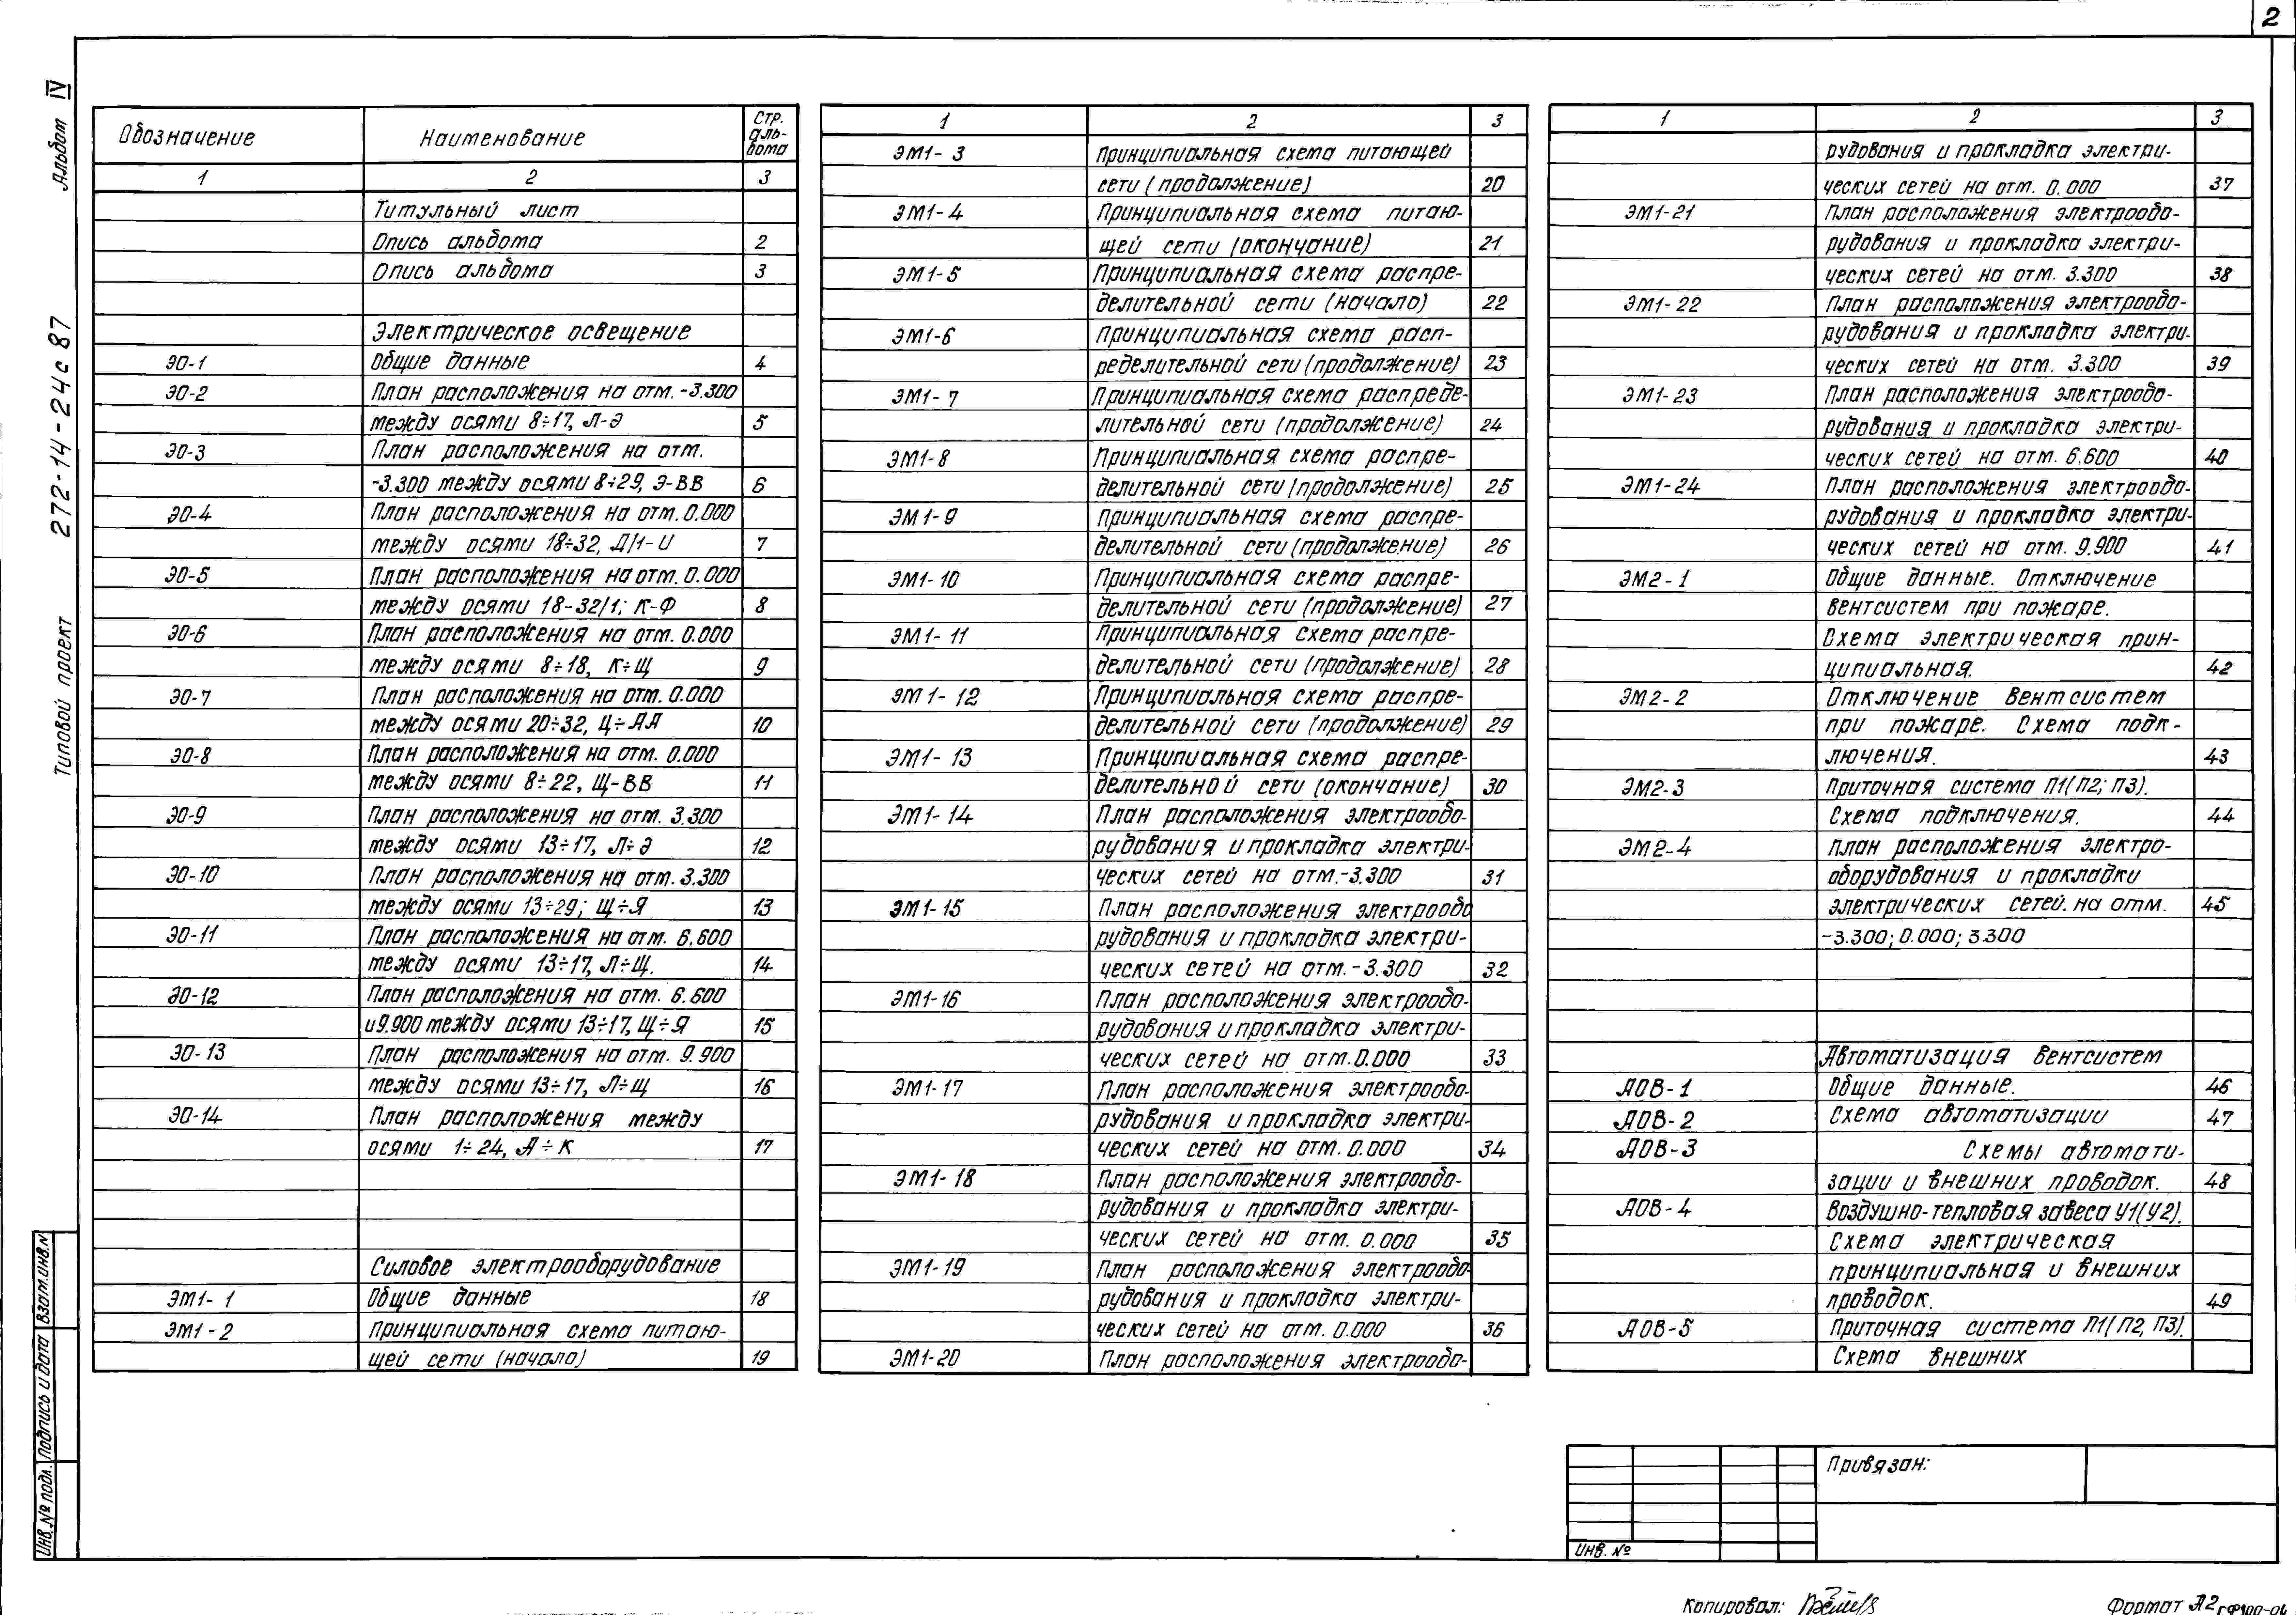 2
Альбом IV
Типовой проект 272-14-24с 87
Обозначение Наименование Стр. аль- бома
1 2 3
Титульный лист
Опись альбома 2
Опись альбома 3
Электрическое освещение
ЭО-1 Общие данные 4
ЭО-2 План расположения на отм. -3.300
между осями 8÷17, Л-Э 5
ЭО-3 План расположения на отм.
-3.300 между осями 8÷29, Э-ВВ 6
ЭО-4 План расположения на отм. 0.000
между осями 18÷32, Д/1-И 7
ЭО-5 План расположения на отм. 0.000
между осями 18-32/1; К-Ф 8
ЭО-6 План расположения на отм. 0.000
между осями 8÷18, К÷Щ 9
ЭО-7 План расположения на отм. 0.000
между осями 20÷32, Ц÷АА 10
ЭО-8 План расположения на отм. 0.000
между осями 8÷22, Щ-ВВ 11
ЭО-9 План расположения на отм. 3.300
между осями 13÷17, Л÷Э 12
ЭО-10 План расположения на отм. 3.300
между осями 13÷29; Щ÷Я 13
ЭО-11 План расположения на отм. 6.600
между осями 13÷17, Л÷Щ. 14
ЭО-12 План расположения на отм. 6.600
и 9.900 между осями 13÷17, Щ÷Я 15
ЭО-13 План расположения на отм. 9.900
между осями 13÷17, Л÷Щ 16
ЭО-14 План расположения между
осями 1÷24, А÷К 17
Силовое электрооборудование
ЭМ1-1 Общие данные 18
ЭМ1-2 Принципиальная схема питаю-
щей сети (начало) 19
1 2 3
ЭМ1-3 Принципиальная схема питающей
сети (продолжение) 20
ЭМ1-4 Принципиальная схема питаю-
щей сети (окончание) 21
ЭМ1-5 Принципиальная схема распре-
делительной сети (начало) 22
ЭМ1-6 Принципиальная схема расп-
ределительной сети (продолжение) 23
ЭМ1-7 Принципиальная схема распреде-
лительной сети (продолжение) 24
ЭМ1-8 Принципиальная схема распре-
делительной сети (продолжение) 25
ЭМ1-9 Принципиальная схема распре-
делительной сети (продолжение) 26
ЭМ1-10 Принципиальная схема распре-
делительной сети (продолжение) 27
ЭМ1-11 Принципиальная схема распре-
делительной сети (продолжение) 28
ЭМ1-12 Принципиальная схема распре-
делительной сети (продолжение) 29
ЭМ1-13 Принципиальная схема распре-
делительной сети (окончание) 30
ЭМ1-14 План расположения электрообо-
рудования и прокладка электри-
ческих сетей на отм.-3.300 31
ЭМ1-15 План расположения электрообо
рудования и прокладка электри-
ческих сетей на отм.-3.300 32
ЭМ1-16 План расположения электрообо-
рудования и прокладка электри-
ческих сетей на отм.0.000 33
ЭМ1-17 План расположения электрообо-
рудования и прокладка электри-
ческих сетей на отм. 0.000 34
ЭМ1-18 План расположения электрообо-
рудования и прокладка электри-
ческих сетей на отм. 0.000 35
ЭМ1-19 План расположения электрообо-
рудования и прокладка электри-
ческих сетей на отм. 0.000 36
ЭМ1-20 План расположения электрообо-
1 2 3
рудования и прокладка электри-
ческих сетей на отм. 0.000 37
ЭМ1-21 План расположения электрообо-
рудования и прокладка электри-
ческих сетей на отм. 3.300 38
ЭМ1-22 План расположения электрообо-
рудования и прокладка электри-
ческих сетей на отм. 3.300 39
ЭМ1-23 План расположения электрообо-
рудования и прокладка электри-
ческих сетей на отм. 6.600 40
ЭМ1-24 План расположения электрообо-
рудования и прокладка электри-
ческих сетей на отм. 9.900 41
ЭМ2-1 Общие данные. Отключение
вентсистем при пожаре.
Схема электрическая прин-
ципиальная. 42
ЭМ2-2 Отключение вентсистем
при пожаре. Схема подк-
лючения. 43
ЭМ2-3 Приточная система П1(П2; П3).
Схема подключения. 44
ЭМ2-4 План расположения электро-
оборудования и прокладки
электрических сетей. на отм. 45
-3.300; 0.000; 3.300
Автоматизация вентсистем
АОВ-1 Общие данные. 46
АОВ-2 Схема автоматизации 47
АОВ-3 Схемы автомати-
зации и внешних проводок. 48
АОВ-4 Воздушно-тепловая завеса У1(У2).
Схема электрическая
принципиальная и внешних
проводок. 49
АОВ-5 Приточная система П1(П2, П3).
Схема внешних
Инв. № подл. Подпись и дата Взам.инв.N
Привязан:
Инв. №
Копировал:
Формат А2